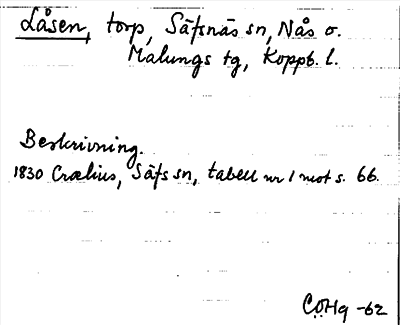 Låsen, torp, Säfsnäs sn, Nås o.
Malungs tg, Koppb. l.
Beskrivning.
1830 Crælius, Säfs sn, tabell nr 1 mot s. 66.
CÖHg -62